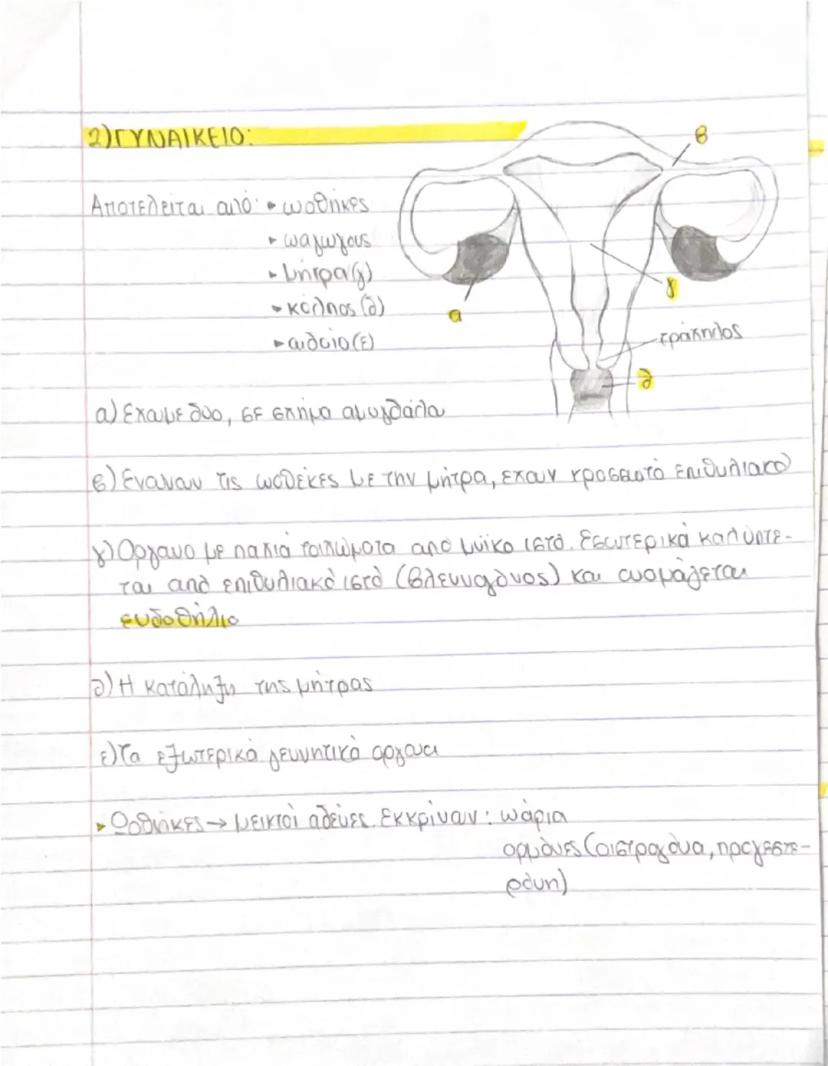 2) ΓΥΝΑΙΚΕΙΟ:
β
Αποτελείται από: ▸ ωοθήκες
▸ ωαγωγους
▸ μήτρα (γ)
γ
α
▸ κόλπος (δ)
τράχηλος
▸ αιδοίο (ε)
δ
α) Εχουμε δυο, σε σχήμα αμυγδάλα
β) Ενωναν τις ωοθέκες με την μήτρα, εχουν κροσσωτό επιθυλιακό
γ) Οργανο με παχιά τοιχώματα από μϋικο ιστό. Εσωτερικά καλύπτε-
ται από επιθυλιακό ιστό (βλεννογόνος) και ονομάζεται
ενδοθήλιο
δ) Η κατάληξη της μήτρας
ε) Τα εξωτερικά γεννητικά οργανα
▸ Ωοθήκες → μεικτοί αδένες. Εκκρίνουν: ωάρια
ορμόνες (οιστρογόνα, προγεστε-
ρόνη)